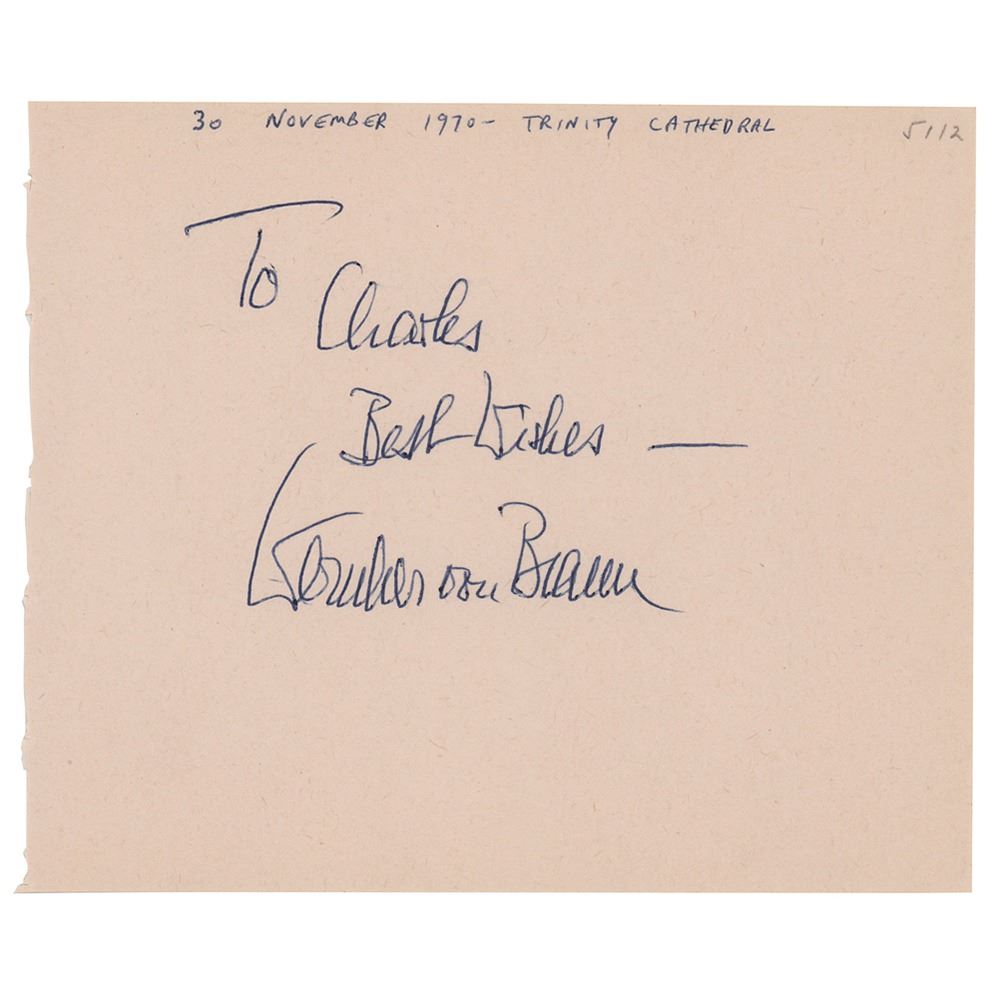 30 NOVEMBER 1970- TRINITY CATHEDRAL 5112
To
Charles
Best Wishes —
Wernher von Braun